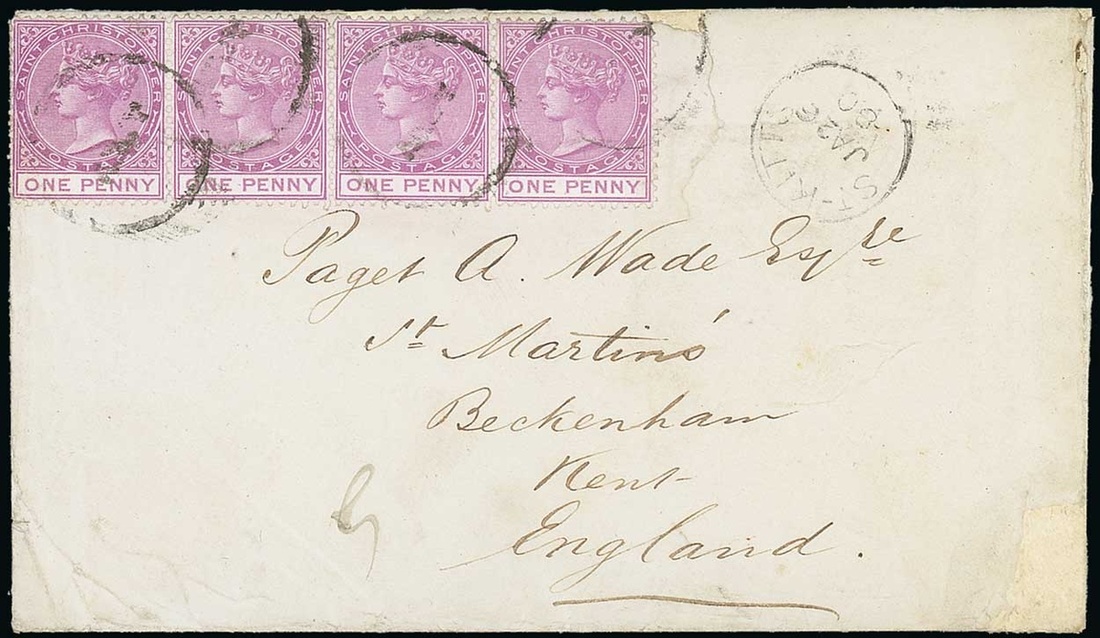 SAINT CHRISTOPHER POSTAGE ONE PENNY
SAINT CHRISTOPHER POSTAGE ONE PENNY
SAINT CHRISTOPHER POSTAGE ONE PENNY
SAINT CHRISTOPHER POSTAGE ONE PENNY
ST-KITTS
JA 26
90
Paget A. Wade Esqre
St Martins'
Beckenham
Kent
England.